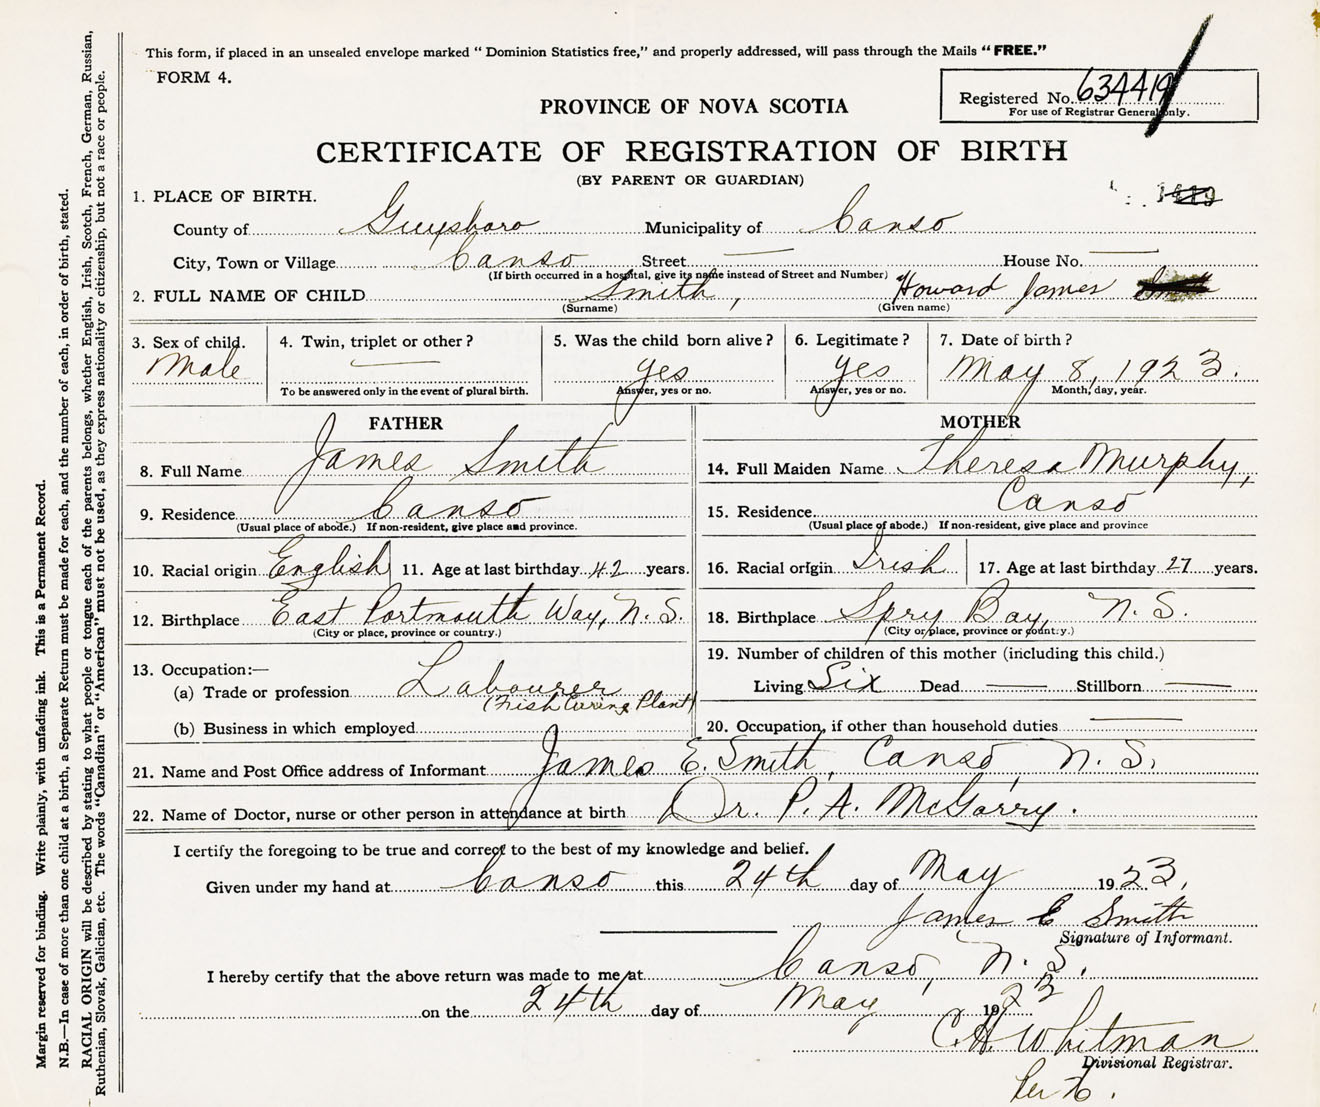 This form, if placed in an unsealed envelope marked "Dominion Statistics free," and properly addressed, will pass through the Mails "FREE."
FORM 4.
Registered No. 634419
For use of Registrar General only.
PROVINCE OF NOVA SCOTIA
CERTIFICATE OF REGISTRATION OF BIRTH
(BY PARENT OR GUARDIAN)
1. PLACE OF BIRTH.
County of Guysboro Municipality of Canso
City, Town or Village Canso Street — House No. —
(If birth occurred in a hospital, give its name instead of Street and Number)
2. FULL NAME OF CHILD Smith, Howard James
(Surname) (Given name)
3. Sex of child. 4. Twin, triplet or other? 5. Was the child born alive? 6. Legitimate? 7. Date of birth?
Male — yes yes May 8, 1923.
To be answered only in the event of plural birth. Answer, yes or no. Answer, yes or no. Month, day, year.
FATHER
8. Full Name James Smith
9. Residence Canso
(Usual place of abode.) If non-resident, give place and province.
10. Racial origin English 11. Age at last birthday 42 years.
12. Birthplace East Portmouth Way, N.S.
(City or place, province or country.)
13. Occupation:—
(a) Trade or profession Labourer
(Fish Curing Plant)
(b) Business in which employed
MOTHER
14. Full Maiden Name Theresa Murphy,
15. Residence Canso
(Usual place of abode.) If non-resident, give place and province
16. Racial origin Irish 17. Age at last birthday 27 years.
18. Birthplace Spry Bay, N.S.
(City or place, province or country.)
19. Number of children of this mother (including this child.)
Living Six Dead — Stillborn —
20. Occupation, if other than household duties —
21. Name and Post Office address of Informant James E. Smith, Canso, N.S.
22. Name of Doctor, nurse or other person in attendance at birth Dr. P. A. McGarry.
I certify the foregoing to be true and correct to the best of my knowledge and belief.
Given under my hand at Canso this 24th day of May 1923,
James E Smith
Signature of Informant.
I hereby certify that the above return was made to me at Canso, N.S.
on the 24th day of May 1923
C. H. Whitman
Divisional Registrar.
Margin reserved for binding. Write plainly, with unfading ink. This is a Permanent Record.
N.B.—In case of more than one child at a birth, a Separate Return must be made for each, and the number of each, in order of birth, stated.
RACIAL ORIGIN will be described by stating to what people or tongue each of the parents belongs, whether English, Irish, Scotch, French, German, Russian,
Ruthenian, Slovak, Galician, etc. The words "Canadian" or "American" must not be used, as they express nationality or citizenship, but not a race or people.